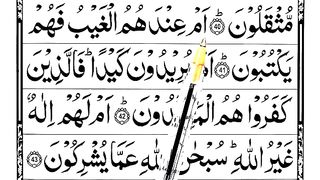 مُّثْقَلُوْنَ ۚ‏ ﴿40﴾ اَمْ عِنْدَهُمُ الْغَيْبُ فَهُمْ
يَكْتُبُوْنَ ؕ‏ ﴿41﴾ اَمْ يُرِيْدُوْنَ كَيْدًا ؕ فَالَّذِيْنَ
كَفَرُوْا هُمُ ؕ‏ ﴿42﴾ اَمْ لَهُمْ اِلٰهٌ
غَيْرُ اللّٰهِ ؕ سُبْحٰنَ اللّٰهِ عَمَّا يُشْرِكُوْنَ ﴿43﴾